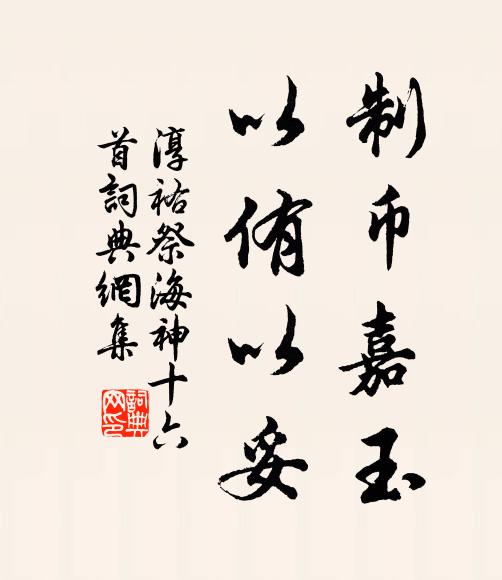 制币嘉玉
以侑以妥
淳祐祭海神十六
首詞典網集
詞典
网印